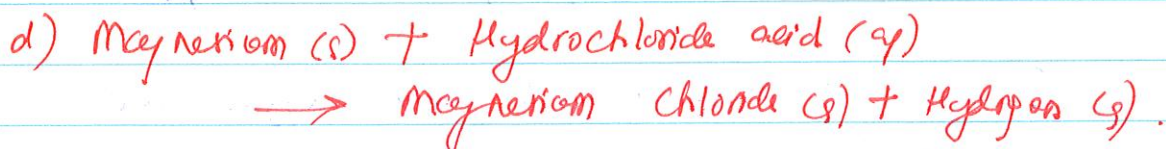 d) Magnesium (s) + Hydrochloride acid (aq)
→ Magnesium Chloride (s) + Hydrogen (g).